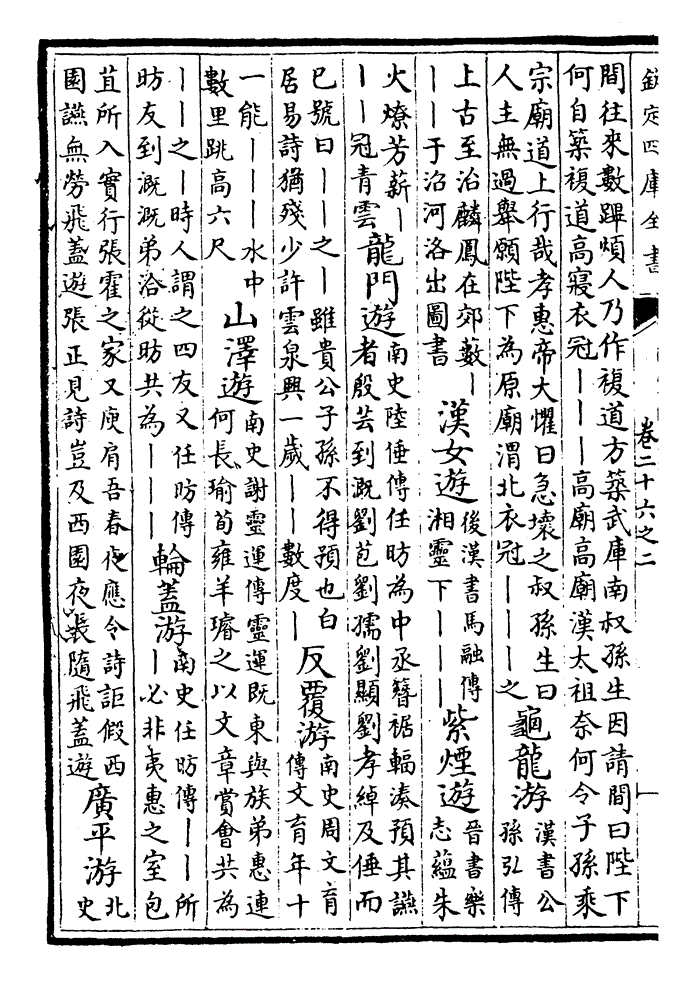 欽定四庫全書
卷二十六之二
間往來數蹕煩人乃作複道方築武庫南叔孫生因請間曰陛下
何自築複道高寢衣冠丨丨丨高廟高廟漢太祖奈何令子孫乘
宗廟道上行哉孝惠帝大懼曰急壞之叔孫生曰
人主無過舉願陛下為原廟渭北衣冠丨丨丨之
龜龍游
漢書公
孫弘傳
上古至治麟鳳在郊藪丨
丨丨于沼河洛出圖書
漢女遊
後漢書馬融傳
湘靈下丨丨丨
紫煙遊
晉書樂
志蘊朱
火燎芳薪丨
丨丨冠青雲
龍門遊
南史陸倕傳任昉為中丞簪裾輻湊預其讌
者殷芸到溉劉苞劉孺劉顯劉孝綽及倕而
已號曰丨丨之丨雖貴公子孫不得預也白
居易詩猶殘少許雲泉興一歲丨丨數度丨
反覆游
南史周文育
傳文育年十
一能丨丨丨水中
數里跳高六尺
山澤遊
南史謝靈運傳靈運既東與族弟惠連
何長瑜荀雍羊璿之以文章賞會共為
丨丨之丨時人謂之四友又任昉傳
昉友到溉溉弟洽從昉共為丨丨丨
輪蓋游
南史任昉傳丨丨所
丨必非夷惠之室包
苴所入實行張霍之家又庾肩吾春夜應令詩詎假西
園讌無勞飛蓋遊張正見詩豈及西園夜長隨飛蓋遊
廣平游
北
史